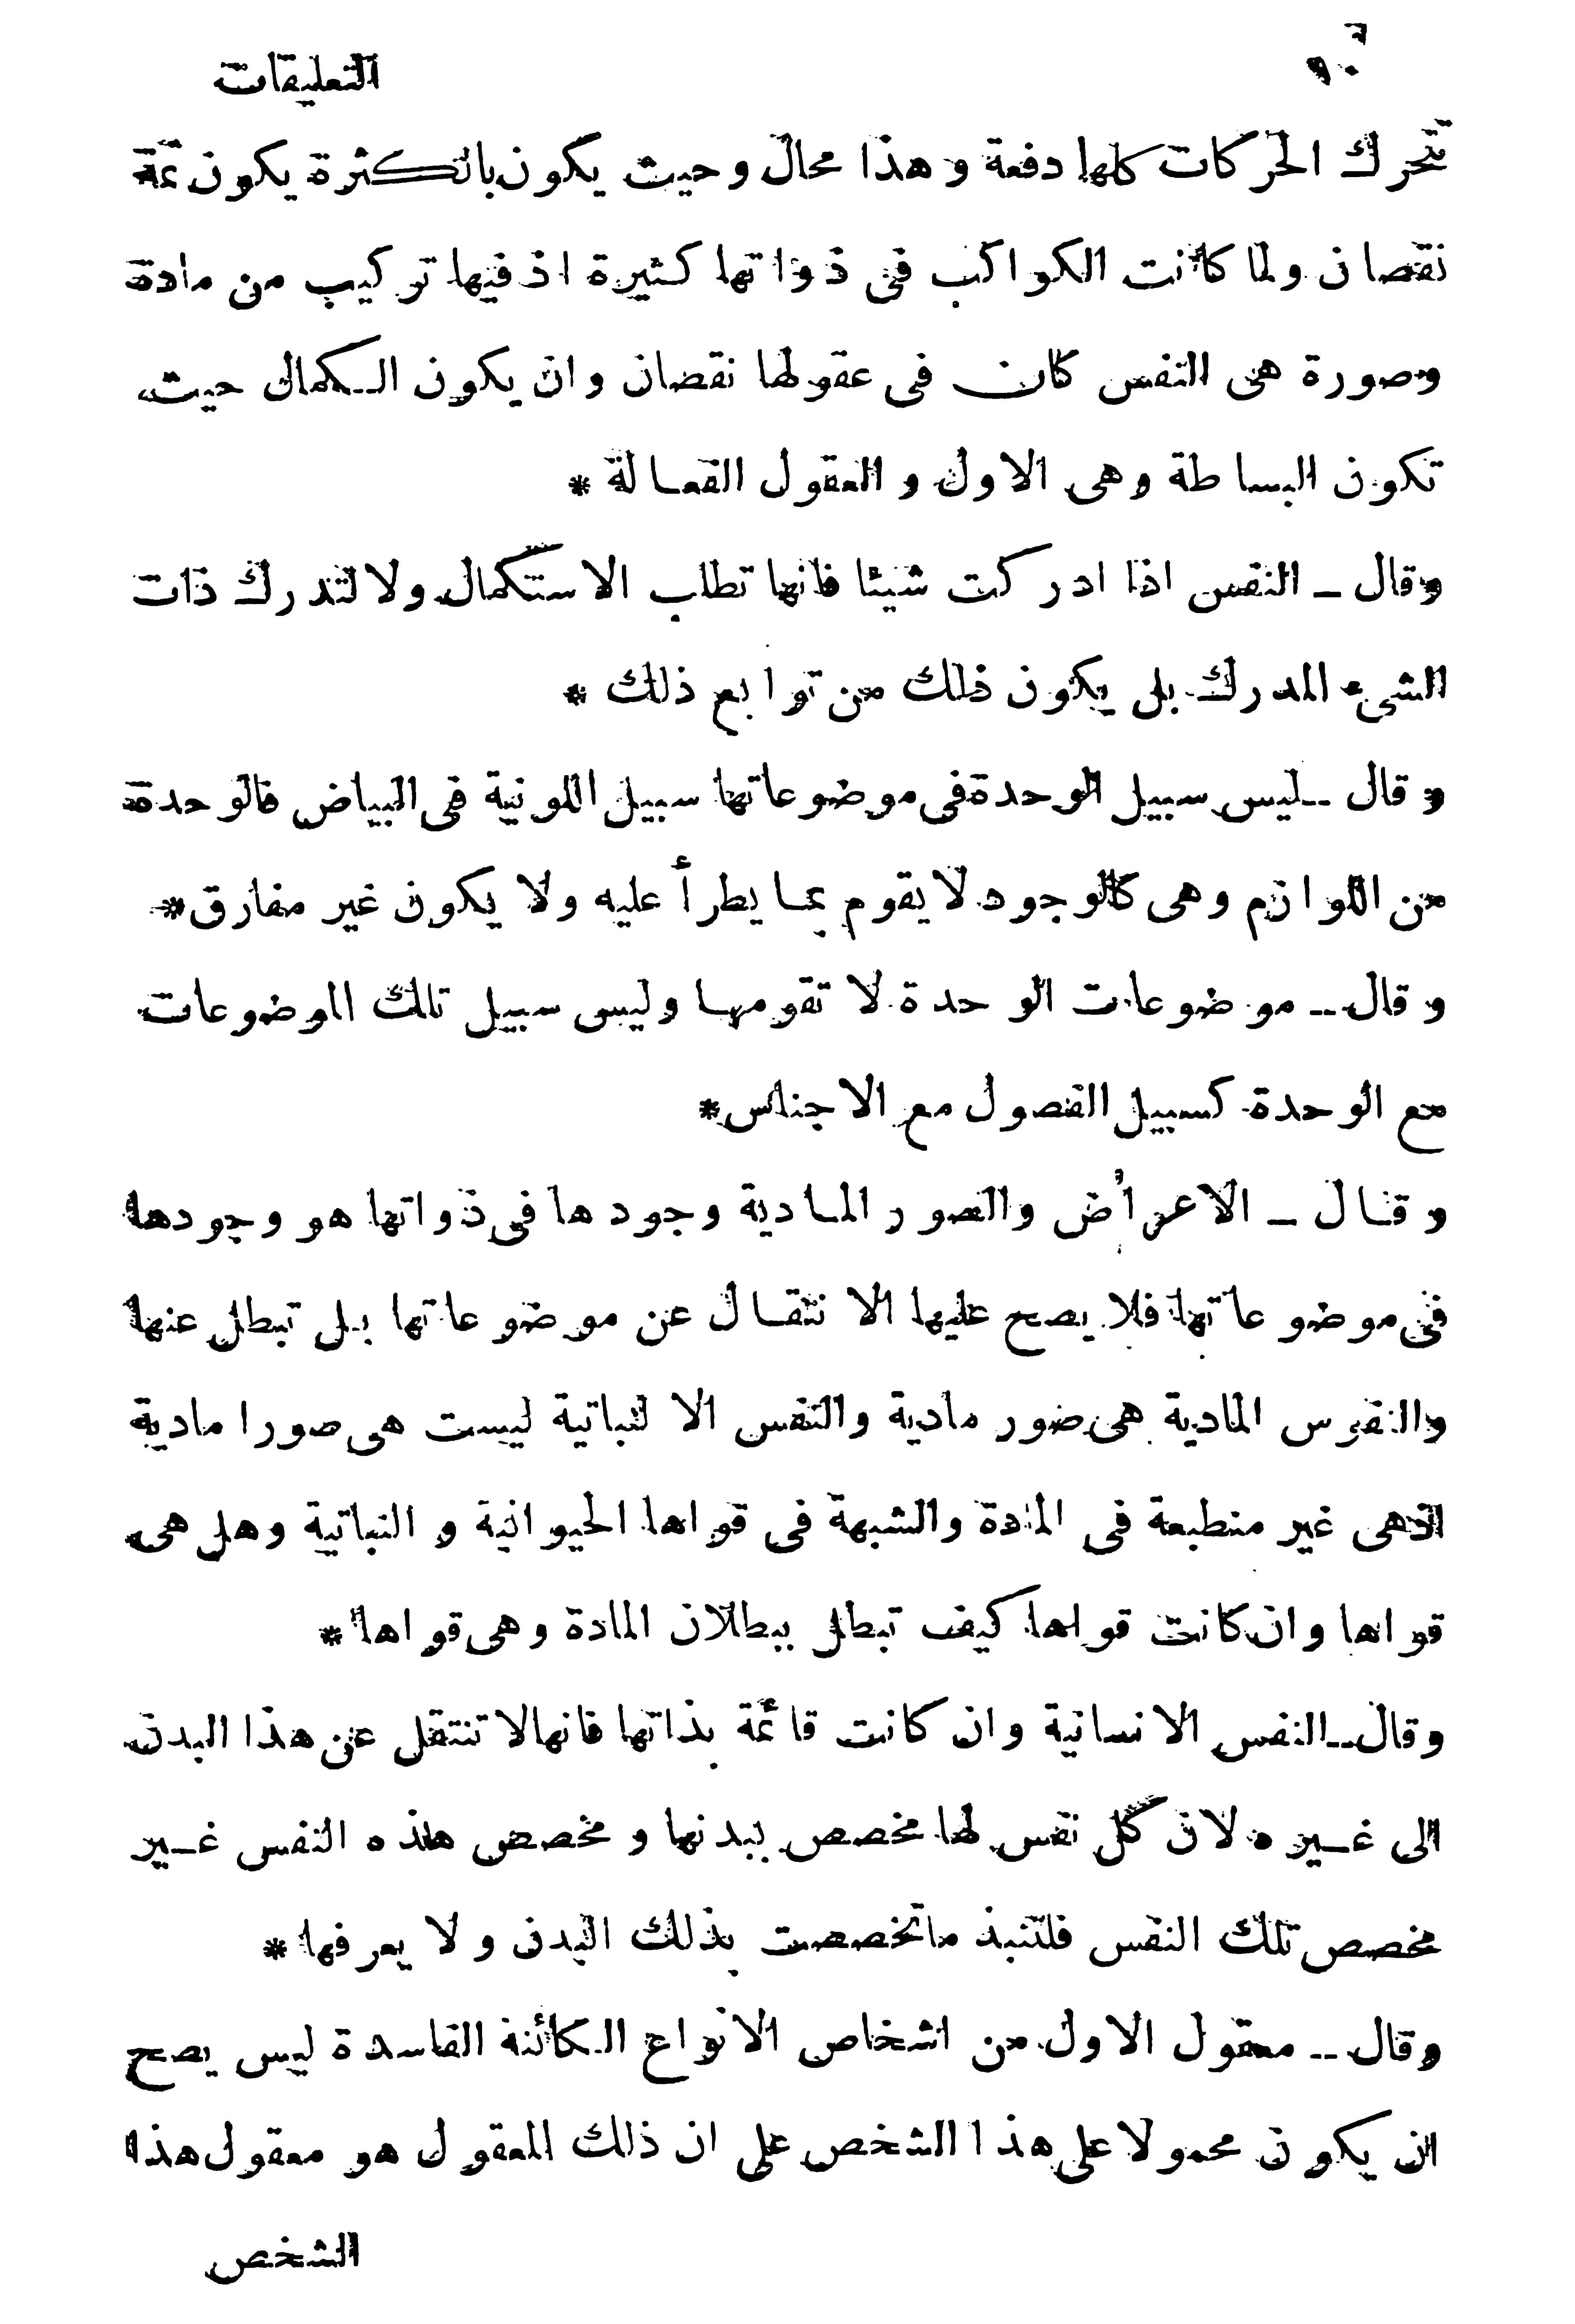 ١٠ التعليقات
تتحرك الحركات كلها دفعة وهذا محال وحيث يكون بالكثرة يكون ثمة
نقصان ولما كانت الكواكب فى ذواتها كثيرة اذ فيها تركيب من مادة
وصورة هى النفس كان فى عقولها نقصان وان يكون الكمال حيث
تكون البساطة وهى الاول والعقول الفعالة *
وقال ـ النفس اذا ادركت شيئا فانها تطلب الاستكمال ولا لتدرك ذات
الشىء المدرك بل يكون ذلك من توابع ذلك *
وقال ـ ليس سبيل الوحدة فى موضوعاتها سبيل اللونية فى البياض فالوحدة
من اللوازم وهى كالوجود لا يقوم بما يطرأ عليه ولا يكون غير مفارق *
وقال ـ موضوعات الوحدة لا تقومها وليس سبيل تلك الموضوعات
مع الوحدة كسبيل الفصول مع الاجناس *
وقال ـ الاعراض والصور المادية وجودها فى ذواتها هو وجودها
فى موضوعاتها فلا يصح عليها الانتقال عن موضوعاتها بل تبطل عنها
والنفوس المادية هى صور مادية والنفس الا لنباتية ليست هى صورا مادية
اذهى غير منطبعة فى المادة والشبهة فى قواها الحيوانية والنباتية وهل هى
قواها وان كانت قواها كيف تبطل ببطلان المادة وهى قواها *
وقال ـ النفس الانسانية وان كانت قائمة بذاتها فانها لا تنتقل عن هذا البدن
الى غيره لان كل نفس لها مخصص ببدنها ومخصص هذه النفس غير
مخصص تلك النفس فلتنبذ ما تخصصت بذلك البدن ولا يعرفها *
وقال ـ معقول الاول من اشخاص الانواع الكائنة الفاسدة ليس يصح
ان يكون محمولا على هذا الشخص على ان ذلك المعقول هو معقول هذا
الشخص